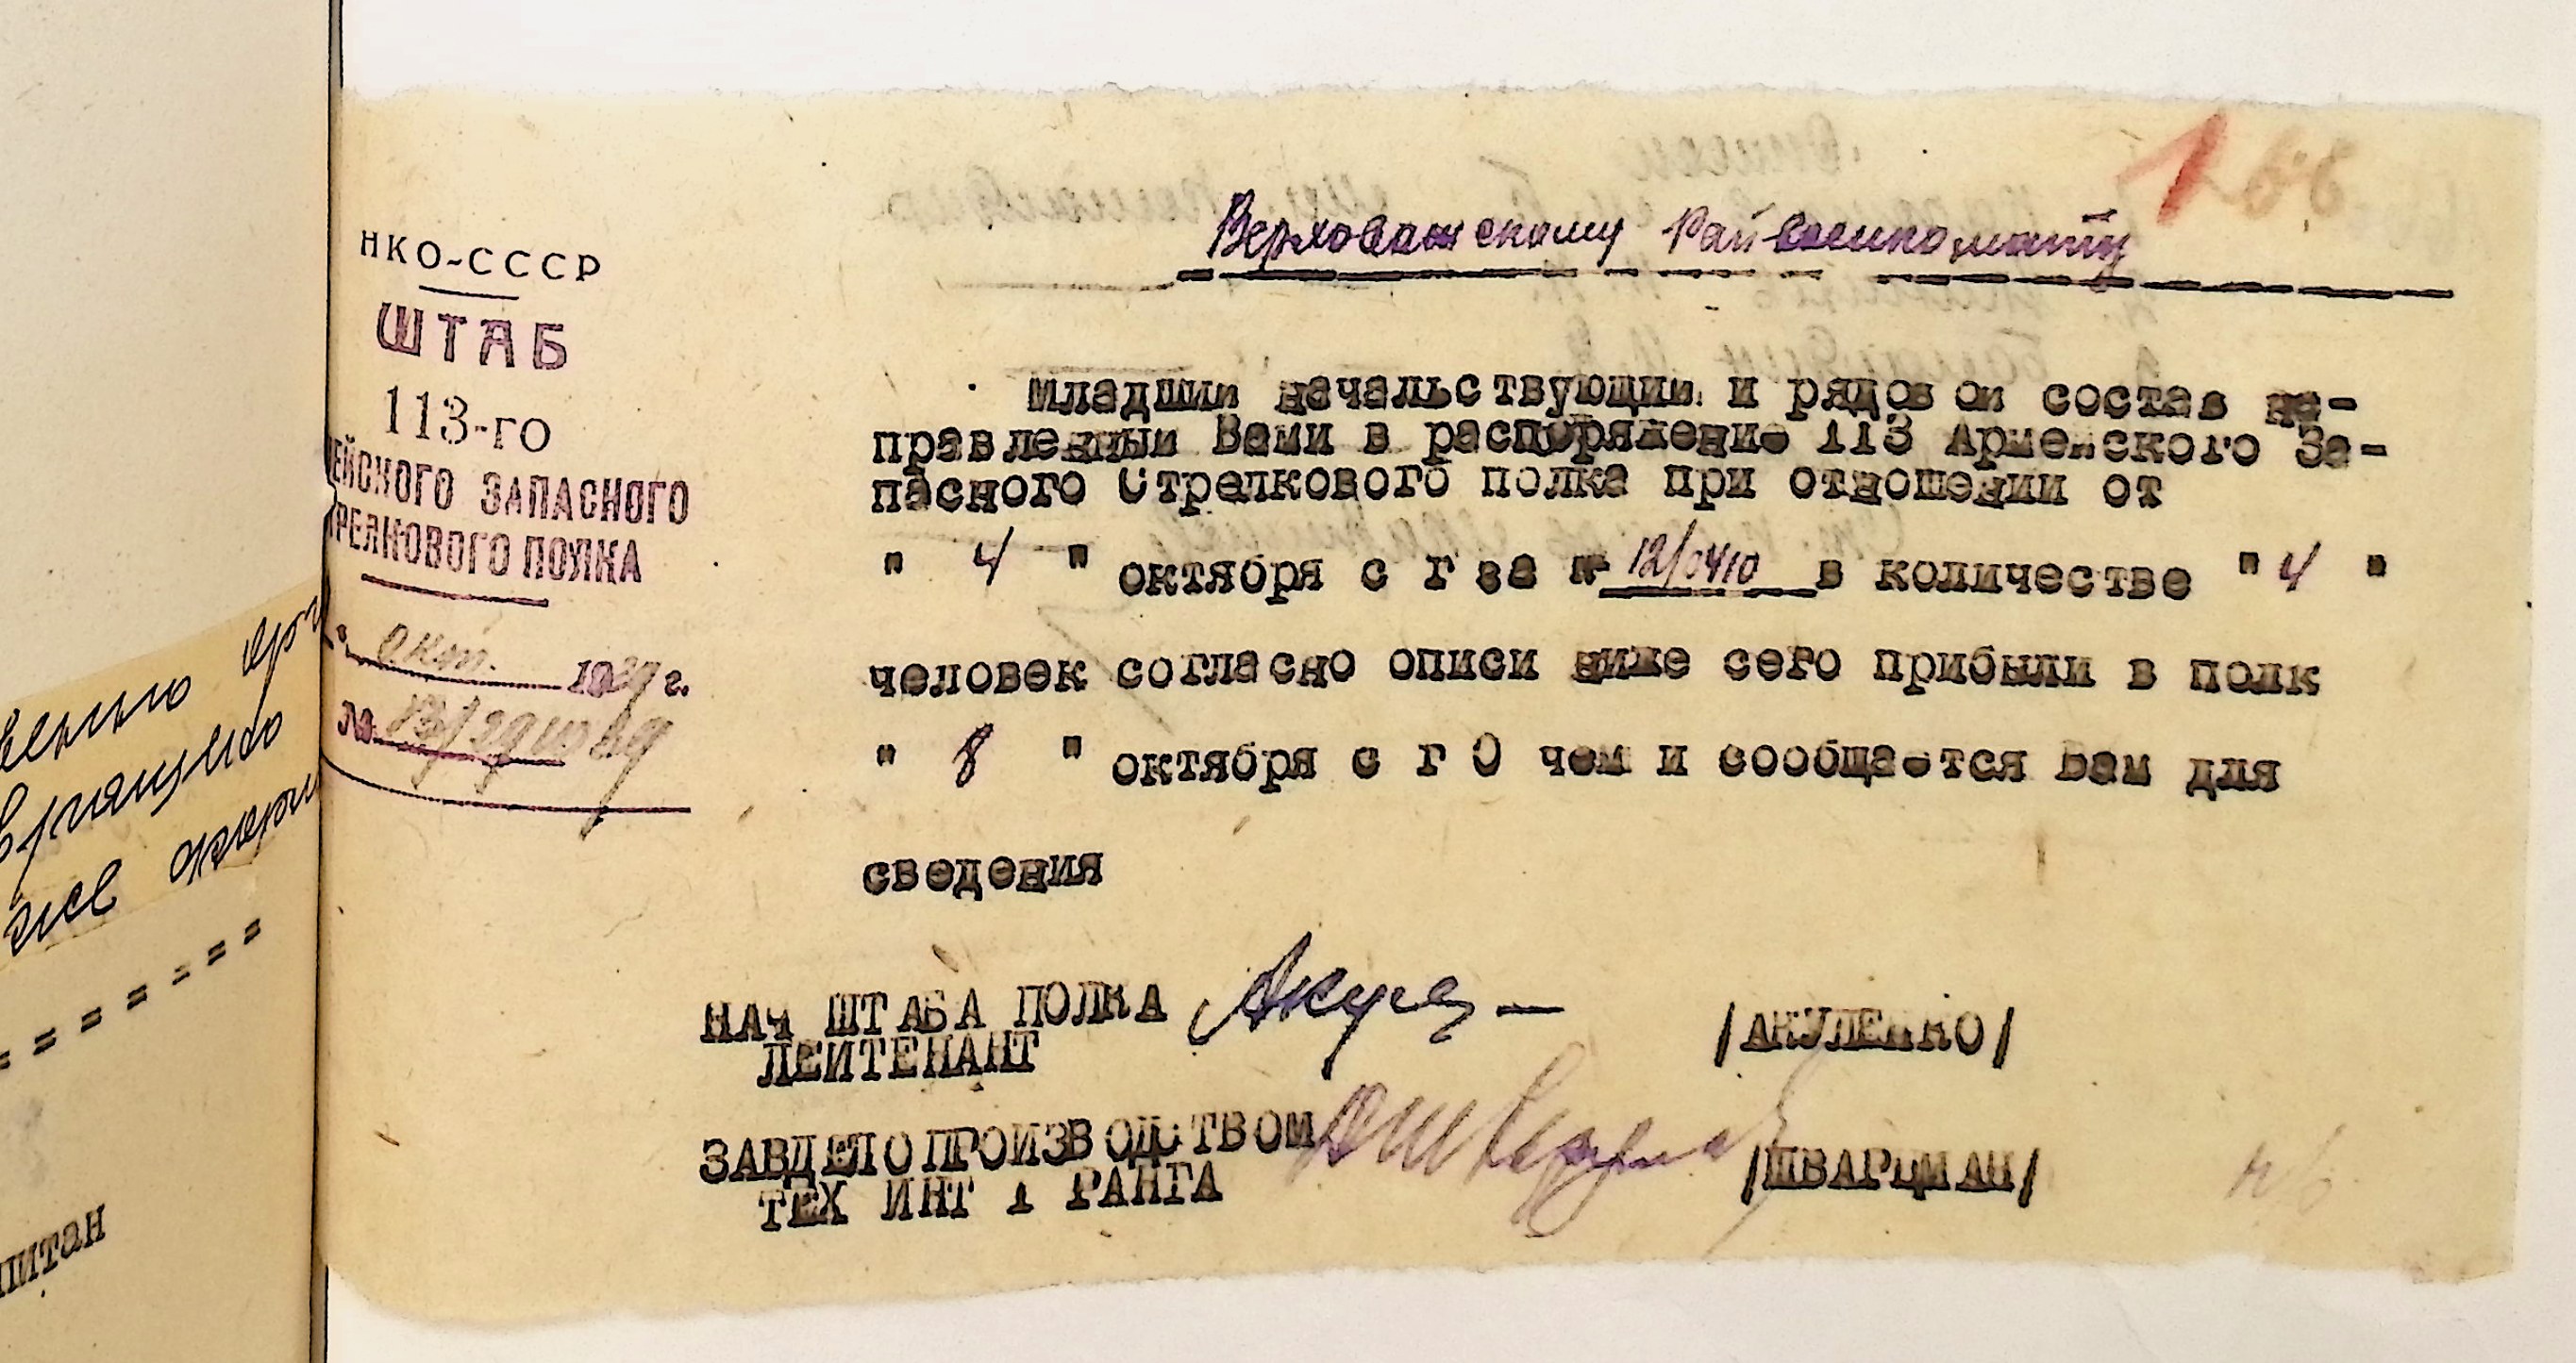 НКО-СССР
ШТАБ
113-го
ЕЙСКОГО ЗАПАСНОГО
РЕЛКОВОГО ПОЛКА
окт. 19 г.
№
Верховажскому Райвоенкомату
младшии начальствующии и рядовои состав на-
правленныи Вами в распоряжение 113 Армеиского За-
пасного Стрелкового полка при отношении от
" 4 " октября с г за № 12/0410 в количестве " 4 "
человек согласно описи ниже сего прибыли в полк
" 8 " октября с г О чем и сообщается Вам для
сведения
НАЧ ШТАБА ПОЛКА /АКУЛЕНКО/
ЛЕИТЕНАНТ
ЗАВДЕЛОПРОИЗВОДСТВОМ /ШВАРЦМАН/
ТЕХ ИНТ 1 РАНГА
питан